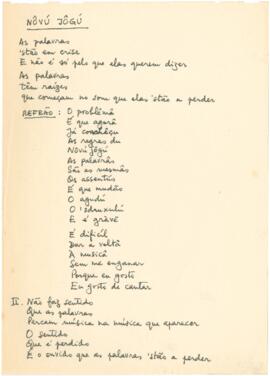 NOVÚ JÔGÚ
As palavras
'stão em crise
E não é só pelo que elas querem dizer
As palavras
têm raízes
que começam no som que elas 'stão a perder
REFRÃO: O problêmâ
É que agorâ
Já conhêçu
As regras du
Nôvú jôgú
As palavrâs
São as mesmâs
Os assentús
É que mudão
O agudú
O 'sdruxulú
E é grávê
É difícil
Dar a voltâ
À musicâ
Sem me enganar
Porque eu gosto
Eu gosto de cantar
II. Não faz sentido
Que as palavras
Percam música na música que aparecer
O sentido
Que é perdido
É o ouvido que as palavras 'stão a perder